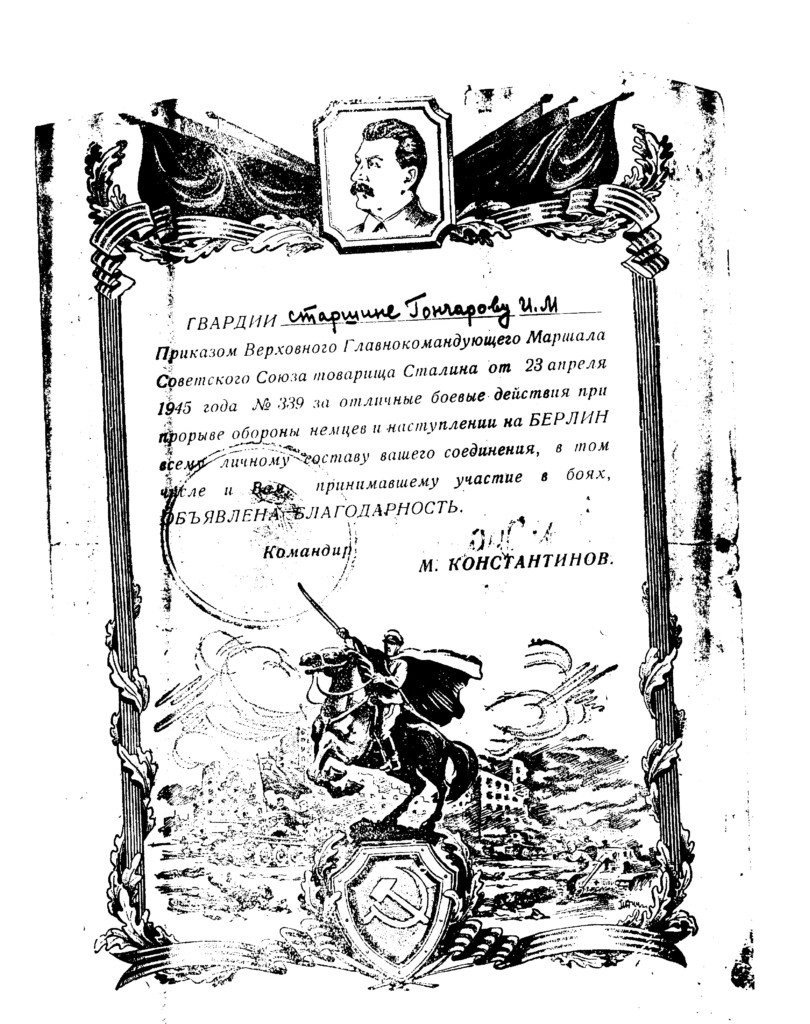 ГВАРДИИ старшине Гончарову И.М
Приказом Верховного Главнокомандующего Маршала
Советского Союза товарища Сталина от 23 апреля
1945 года № 339 за отличные боевые действия при
прорыве обороны немцев и наступлении на БЕРЛИН
всему личному составу вашего соединения, в том
числе и Вам, принимавшему участие в боях,
ОБЪЯВЛЕНА БЛАГОДАРНОСТЬ.
Командир
М. КОНСТАНТИНОВ.